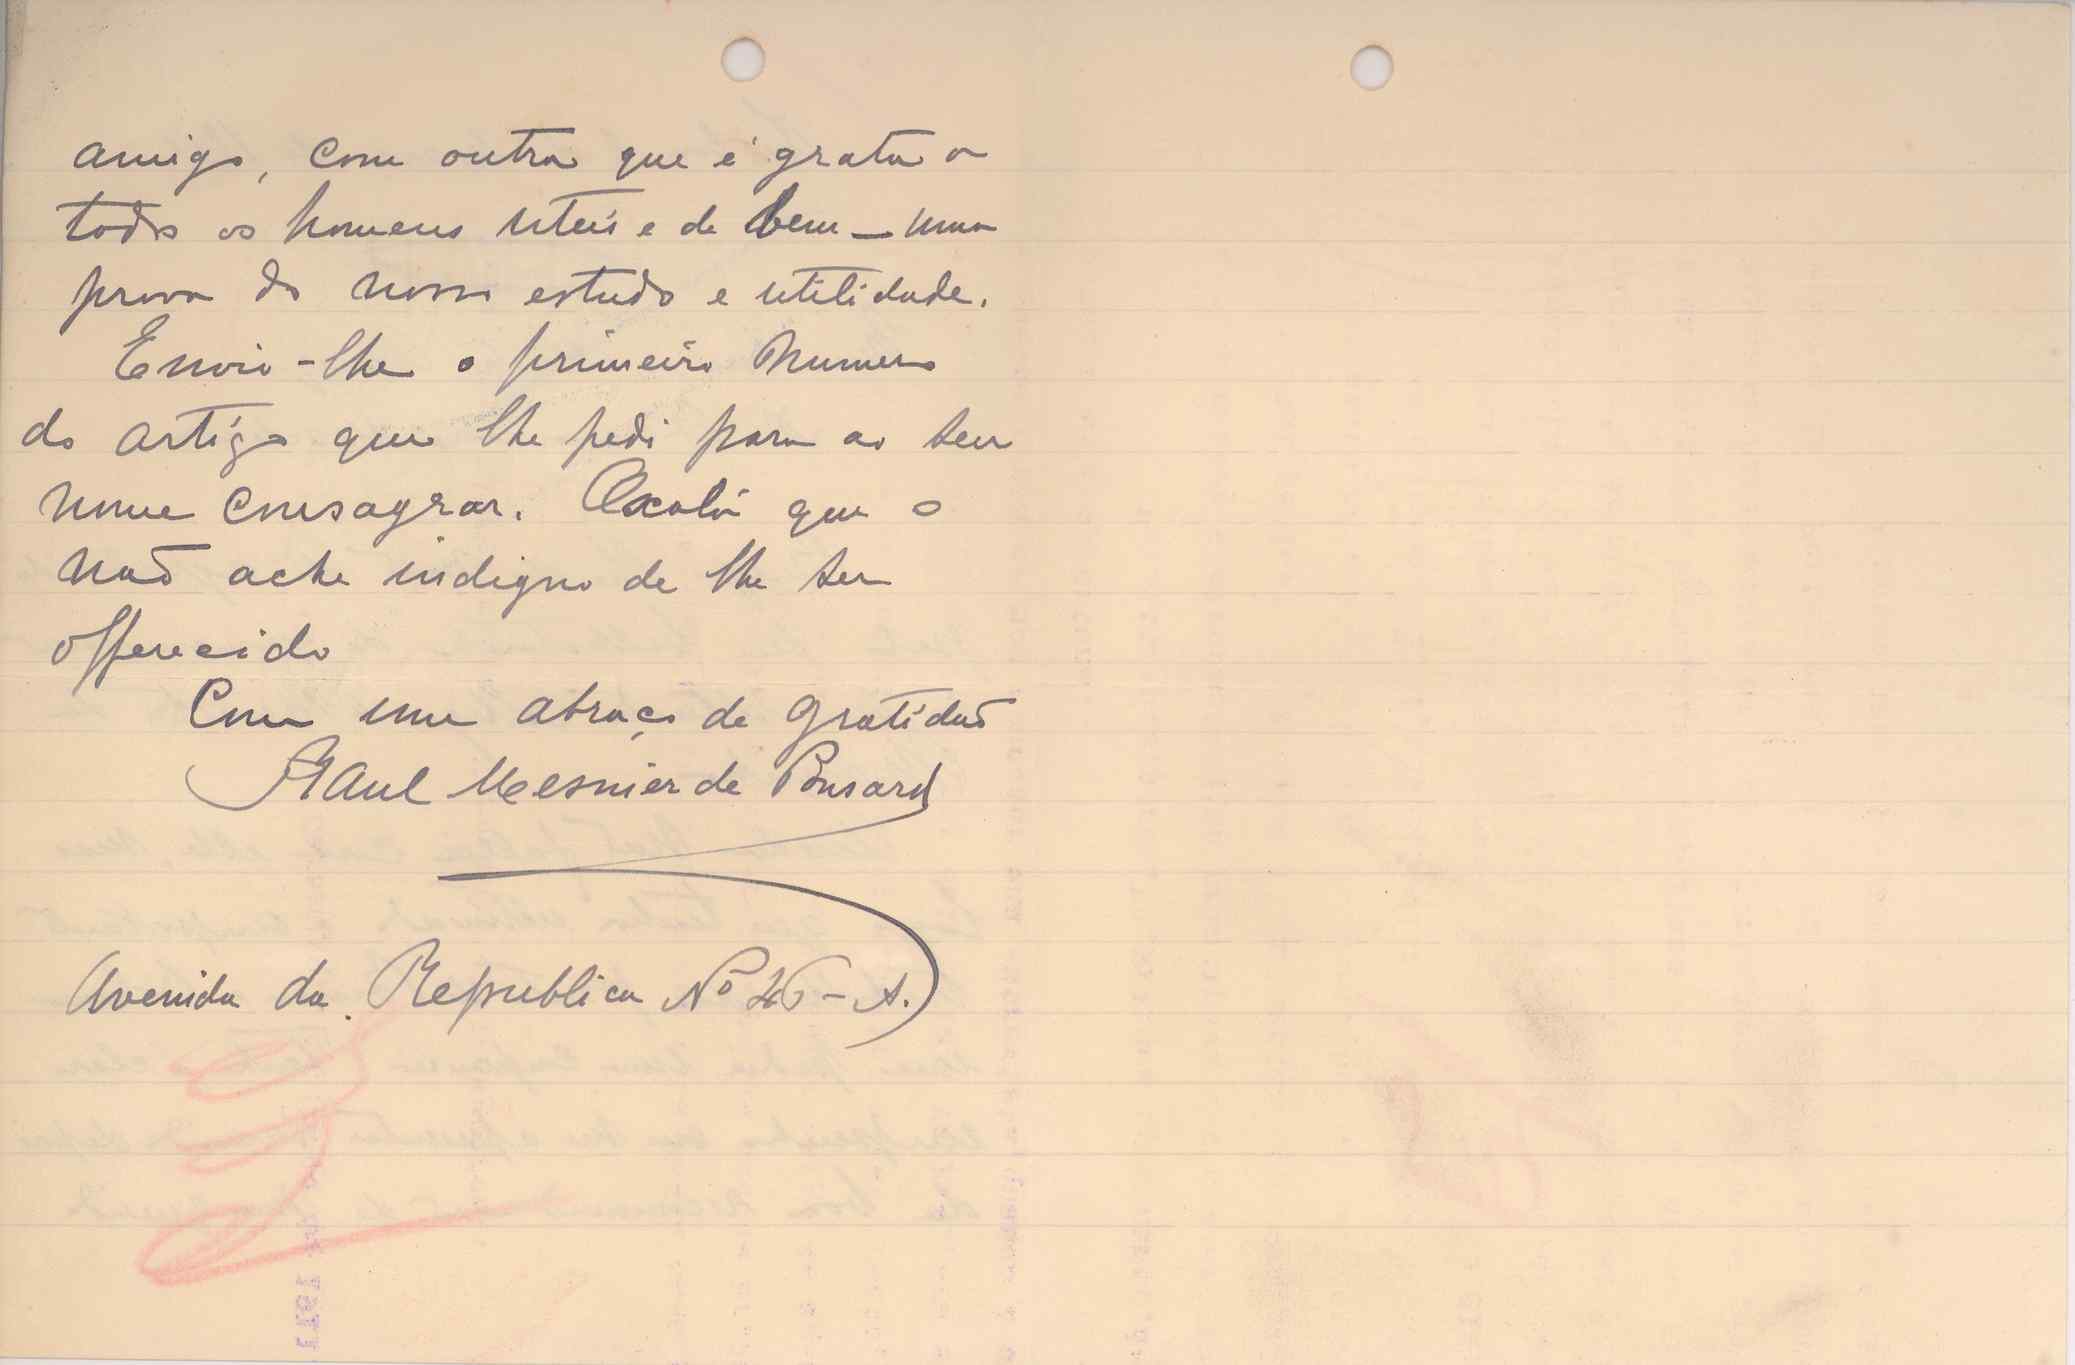 amigo, com outra que é grata a
todos os homens uteis e de bem — uma
prova do nosso estudo e utilidade.
Envio-lhe o primeiro numero
do artigo que lhe pedi para ao seu
nome consagrar. Oxalá que o
não ache indigno de lhe ser
offerecido
Com um abraço de gratidão
Raul Mesnier de Ponsard
Avenida da Republica Nº 26-A.